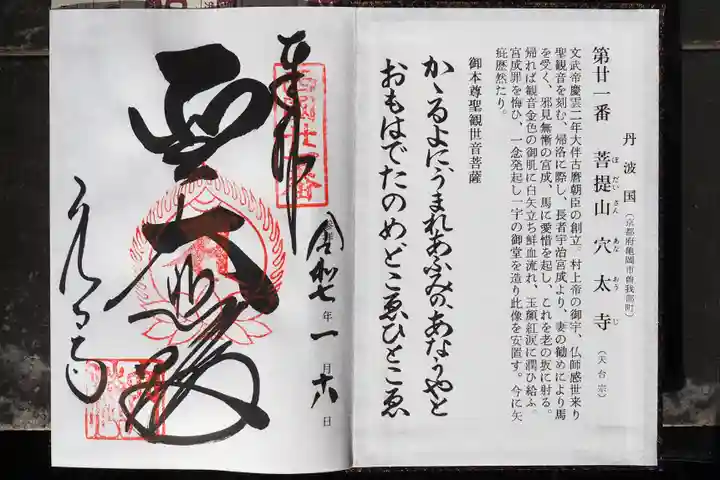 丹波国（京都府亀岡市曽我部町）
第廿一番 菩提山 穴太寺（天台宗）
ぼ だい さん あな おう じ
文武帝慶雲二年大伴古麿朝臣の創立。村上帝の御宇、仏師感世来り
聖観音を刻む、帰洛に際し、長者宇治宮成より、妻の勧めにより馬
を受く、邪見無慚の宮成、馬に愛惜を起し、これを老の坂に射る。
帰れば観音金色の御肌に白矢立ち鮮血流れ、玉顔紅涙に潤ひ給ふ。
宮成罪を悔ひ、一念発起し一宇の御堂を造り此像を安置す。今に矢
疵歴然たり。
御本尊聖観世音菩薩
かゝるよにうまれあふみのあなうやと
おもはでたのめどこゑひとこゑ
奉拝
西國廿一番
令和七年一月六日
聖大悲殿
穴太寺